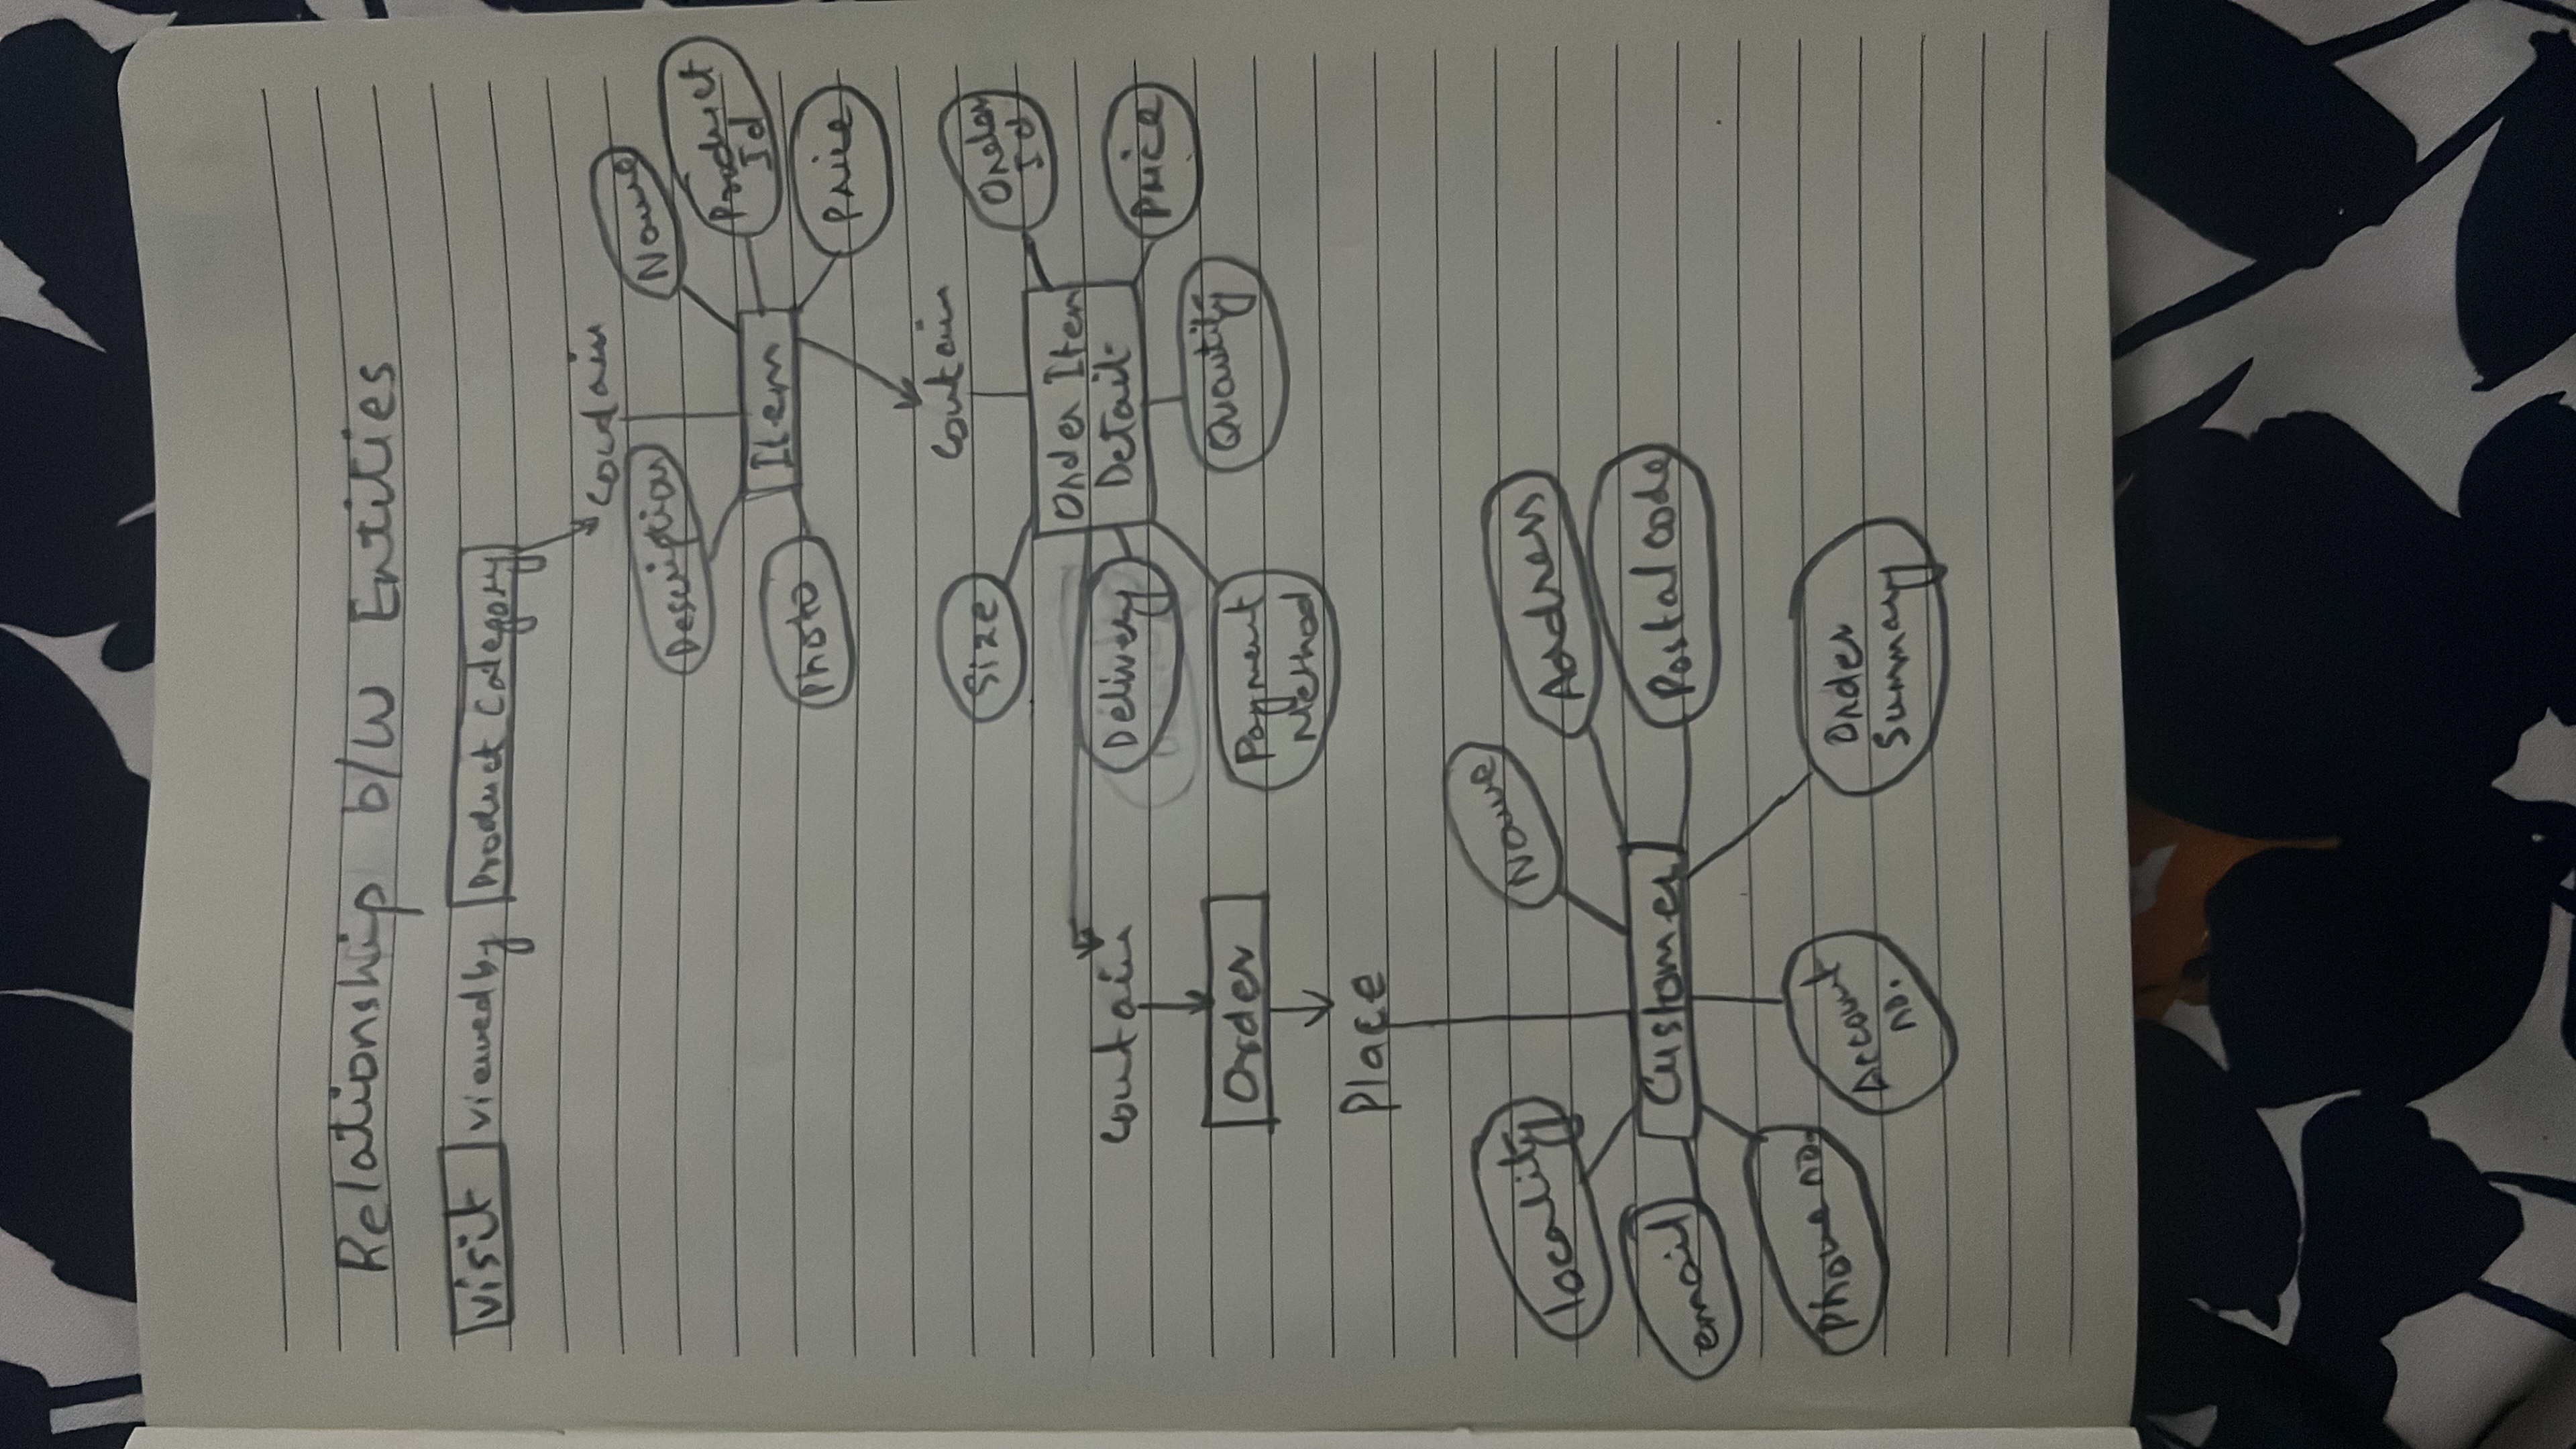 Relationship b/w Entities
Visit viewed by Product Category
Contain
Description
Name
Product
Id
Item
Photo
Price
Contain
Size
Order
Id
Order Item
Detail
Contain
Delivery
Price
Quantity
Order
Payment
Method
Place
Name
locality
Address
Customer
Postal code
email
Phone no.
Account
no.
Order
Summary